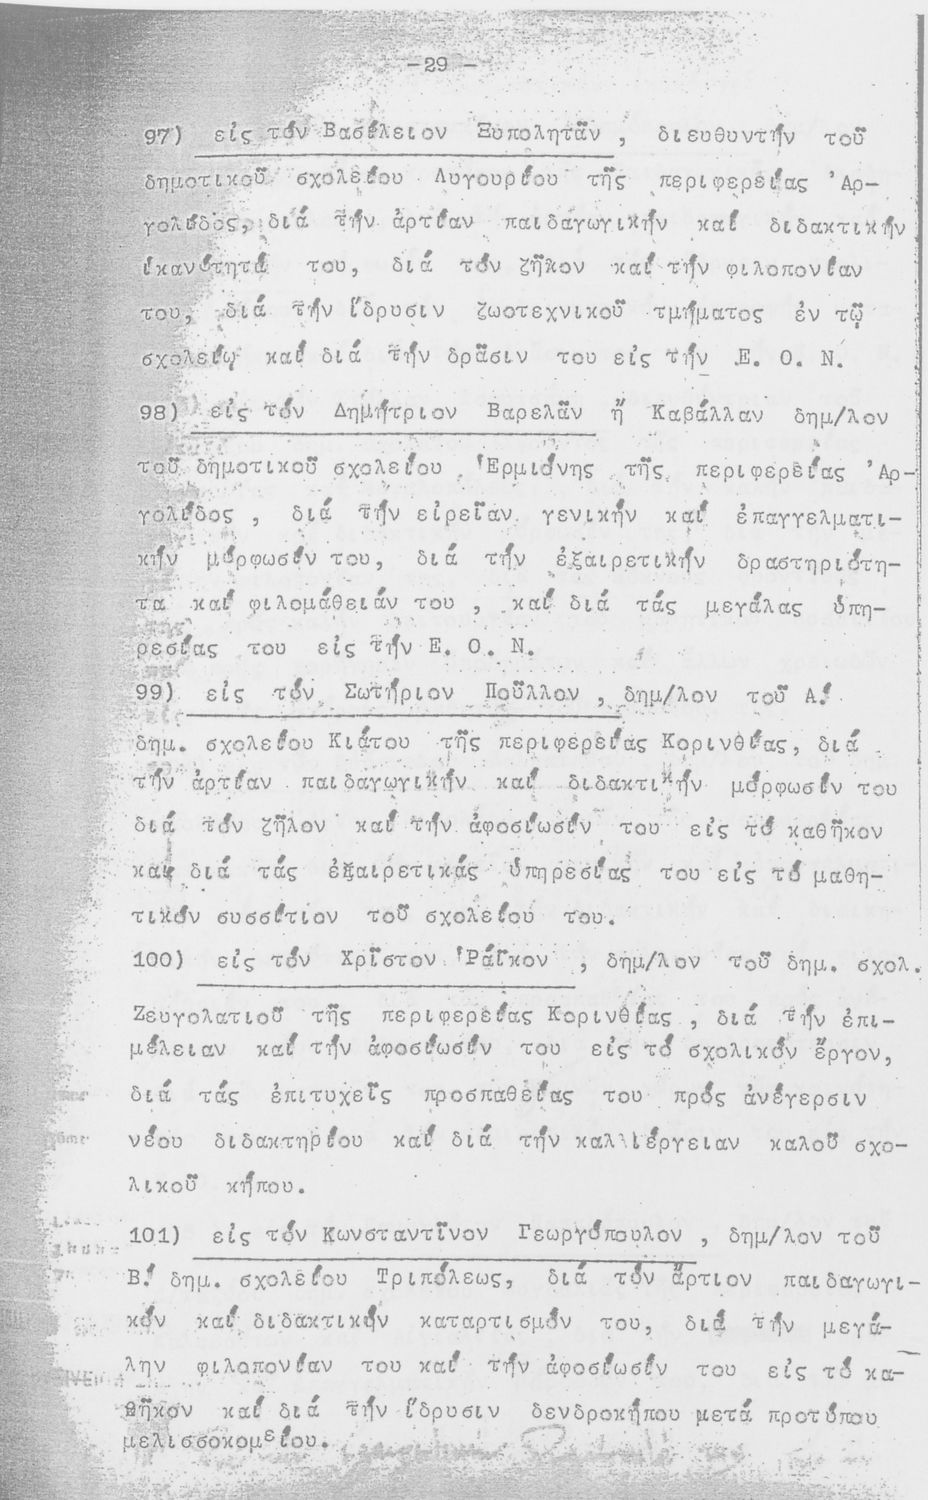 -29-
97) εἰς τόν Βασίλειον Ξυπολητᾶν, διευθυντήν τοῦ
δημοτικοῦ σχολείου Λυγουρίου τῆς περιφερείας Ἀρ-
γολίδος, διά τήν ἀρτίαν παιδαγωγικήν καί διδακτικήν
ἱκανότητά του, διά τόν ζῆλον καί τήν φιλοπονίαν
του, διά τήν ἵδρυσιν ζωοτεχνικοῦ τμήματος ἐν τῷ
σχολείῳ καί διά τήν δρᾶσιν του εἰς τήν Ε. Ο. Ν.
98) εἰς τόν Δημήτριον Βαρελᾶν ἤ Καβάλλαν δημ/λον
τοῦ δημοτικοῦ σχολείου Ἑρμιόνης τῆς περιφερείας Ἀρ-
γολίδος, διά τήν εὐρεῖαν γενικήν καί ἐπαγγελματι-
κήν μόρφωσίν του, διά τήν ἐξαιρετικήν δραστηριότη-
τα καί φιλομάθειάν του, καί διά τάς μεγάλας ὑπη-
ρεσίας του εἰς τήν Ε. Ο. Ν.
99) εἰς τόν Σωτήριον Ποῦλλον, δημ/λον τοῦ Α!
δημ. σχολείου Κιάτου τῆς περιφερείας Κορινθίας, διά
τήν ἀρτίαν παιδαγωγικήν καί διδακτικήν μόρφωσίν του
διά τόν ζῆλον καί τήν ἀφοσίωσίν του εἰς τό καθῆκον
καί διά τάς ἐξαιρετικάς ὑπηρεσίας του εἰς τό μαθη-
τικόν συσσίτιον τοῦ σχολείου του.
100) εἰς τόν Χρῖστον Ῥάϊκον, δημ/λον τοῦ δημ. σχολ.
Ζευγολατιοῦ τῆς περιφερείας Κορινθίας, διά τήν ἐπι-
μέλειαν καί τήν ἀφοσίωσίν του εἰς τό σχολικόν ἔργον,
διά τάς ἐπιτυχεῖς προσπαθείας του πρός ἀνέγερσιν
νέου διδακτηρίου καί διά τήν καλλιέργειαν καλοῦ σχο-
λικοῦ κήπου.
101) εἰς τόν Κωνσταντῖνον Γεωργόπουλον, δημ/λον τοῦ
Β! δημ. σχολείου Τριπόλεως, διά τόν ἄρτιον παιδαγωγι-
κόν καί διδακτικόν καταρτισμόν του, διά τήν μεγά-
λην φιλοπονίαν του καί τήν ἀφοσίωσίν του εἰς τό κα-
θῆκον καί διά τήν ἵδρυσιν δενδροκήπου μετά προτύπου
μελισσοκομείου.